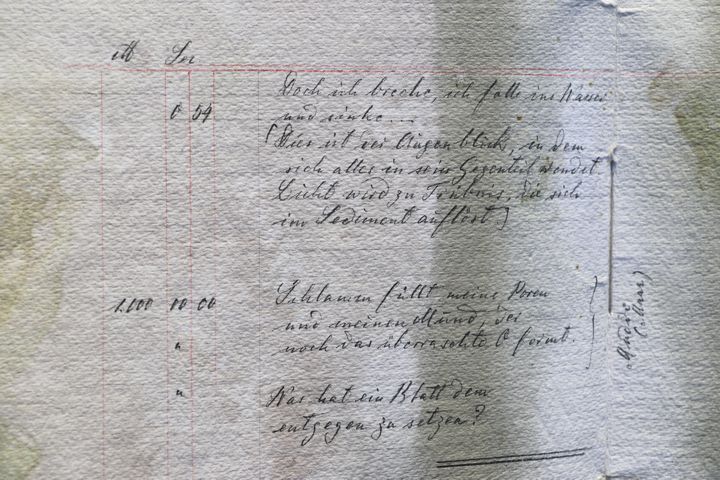 M Sec
Doch ich breche, ich falle ins Wasser
0 54 und sinke...
(Dies ist der Augenblick, in dem
sich alles in sein Gegenteil wendet.
Licht wird zu Trübnis, die sich
im Sediment auflöst)
1.000 00 00 Schlamm füllt meine Poren
und meinen Mund, der
" noch das überraschte O formt.
" Was hat ein Blatt dem
entgegen zu setzen?